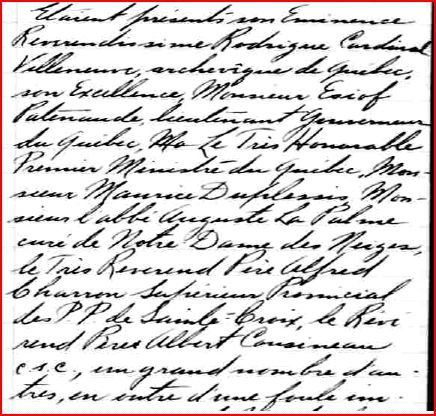 Etaient présents son Eminence
Reverendissime Rodrigue Cardinal
Villeneuve, archevêque de Québec,
son Excellence, Monsieur Esiof
Patenaude, lieutenant Gouverneur
du Québec, Le Très Honorable
Premier Ministre du Québec, Mon-
sieur Maurice Duplessis, Mon-
sieur l'abbé Auguste La Palme
curé de Notre Dame des Neiges,
le Très Reverend Père Alfred
Charron Supérieur Provincial
des P.P. de Sainte-Croix, le Révé
rend Père Albert Cousineau
c.s.c., un grand nombre d'au-
tres, en outre d'une foule im-